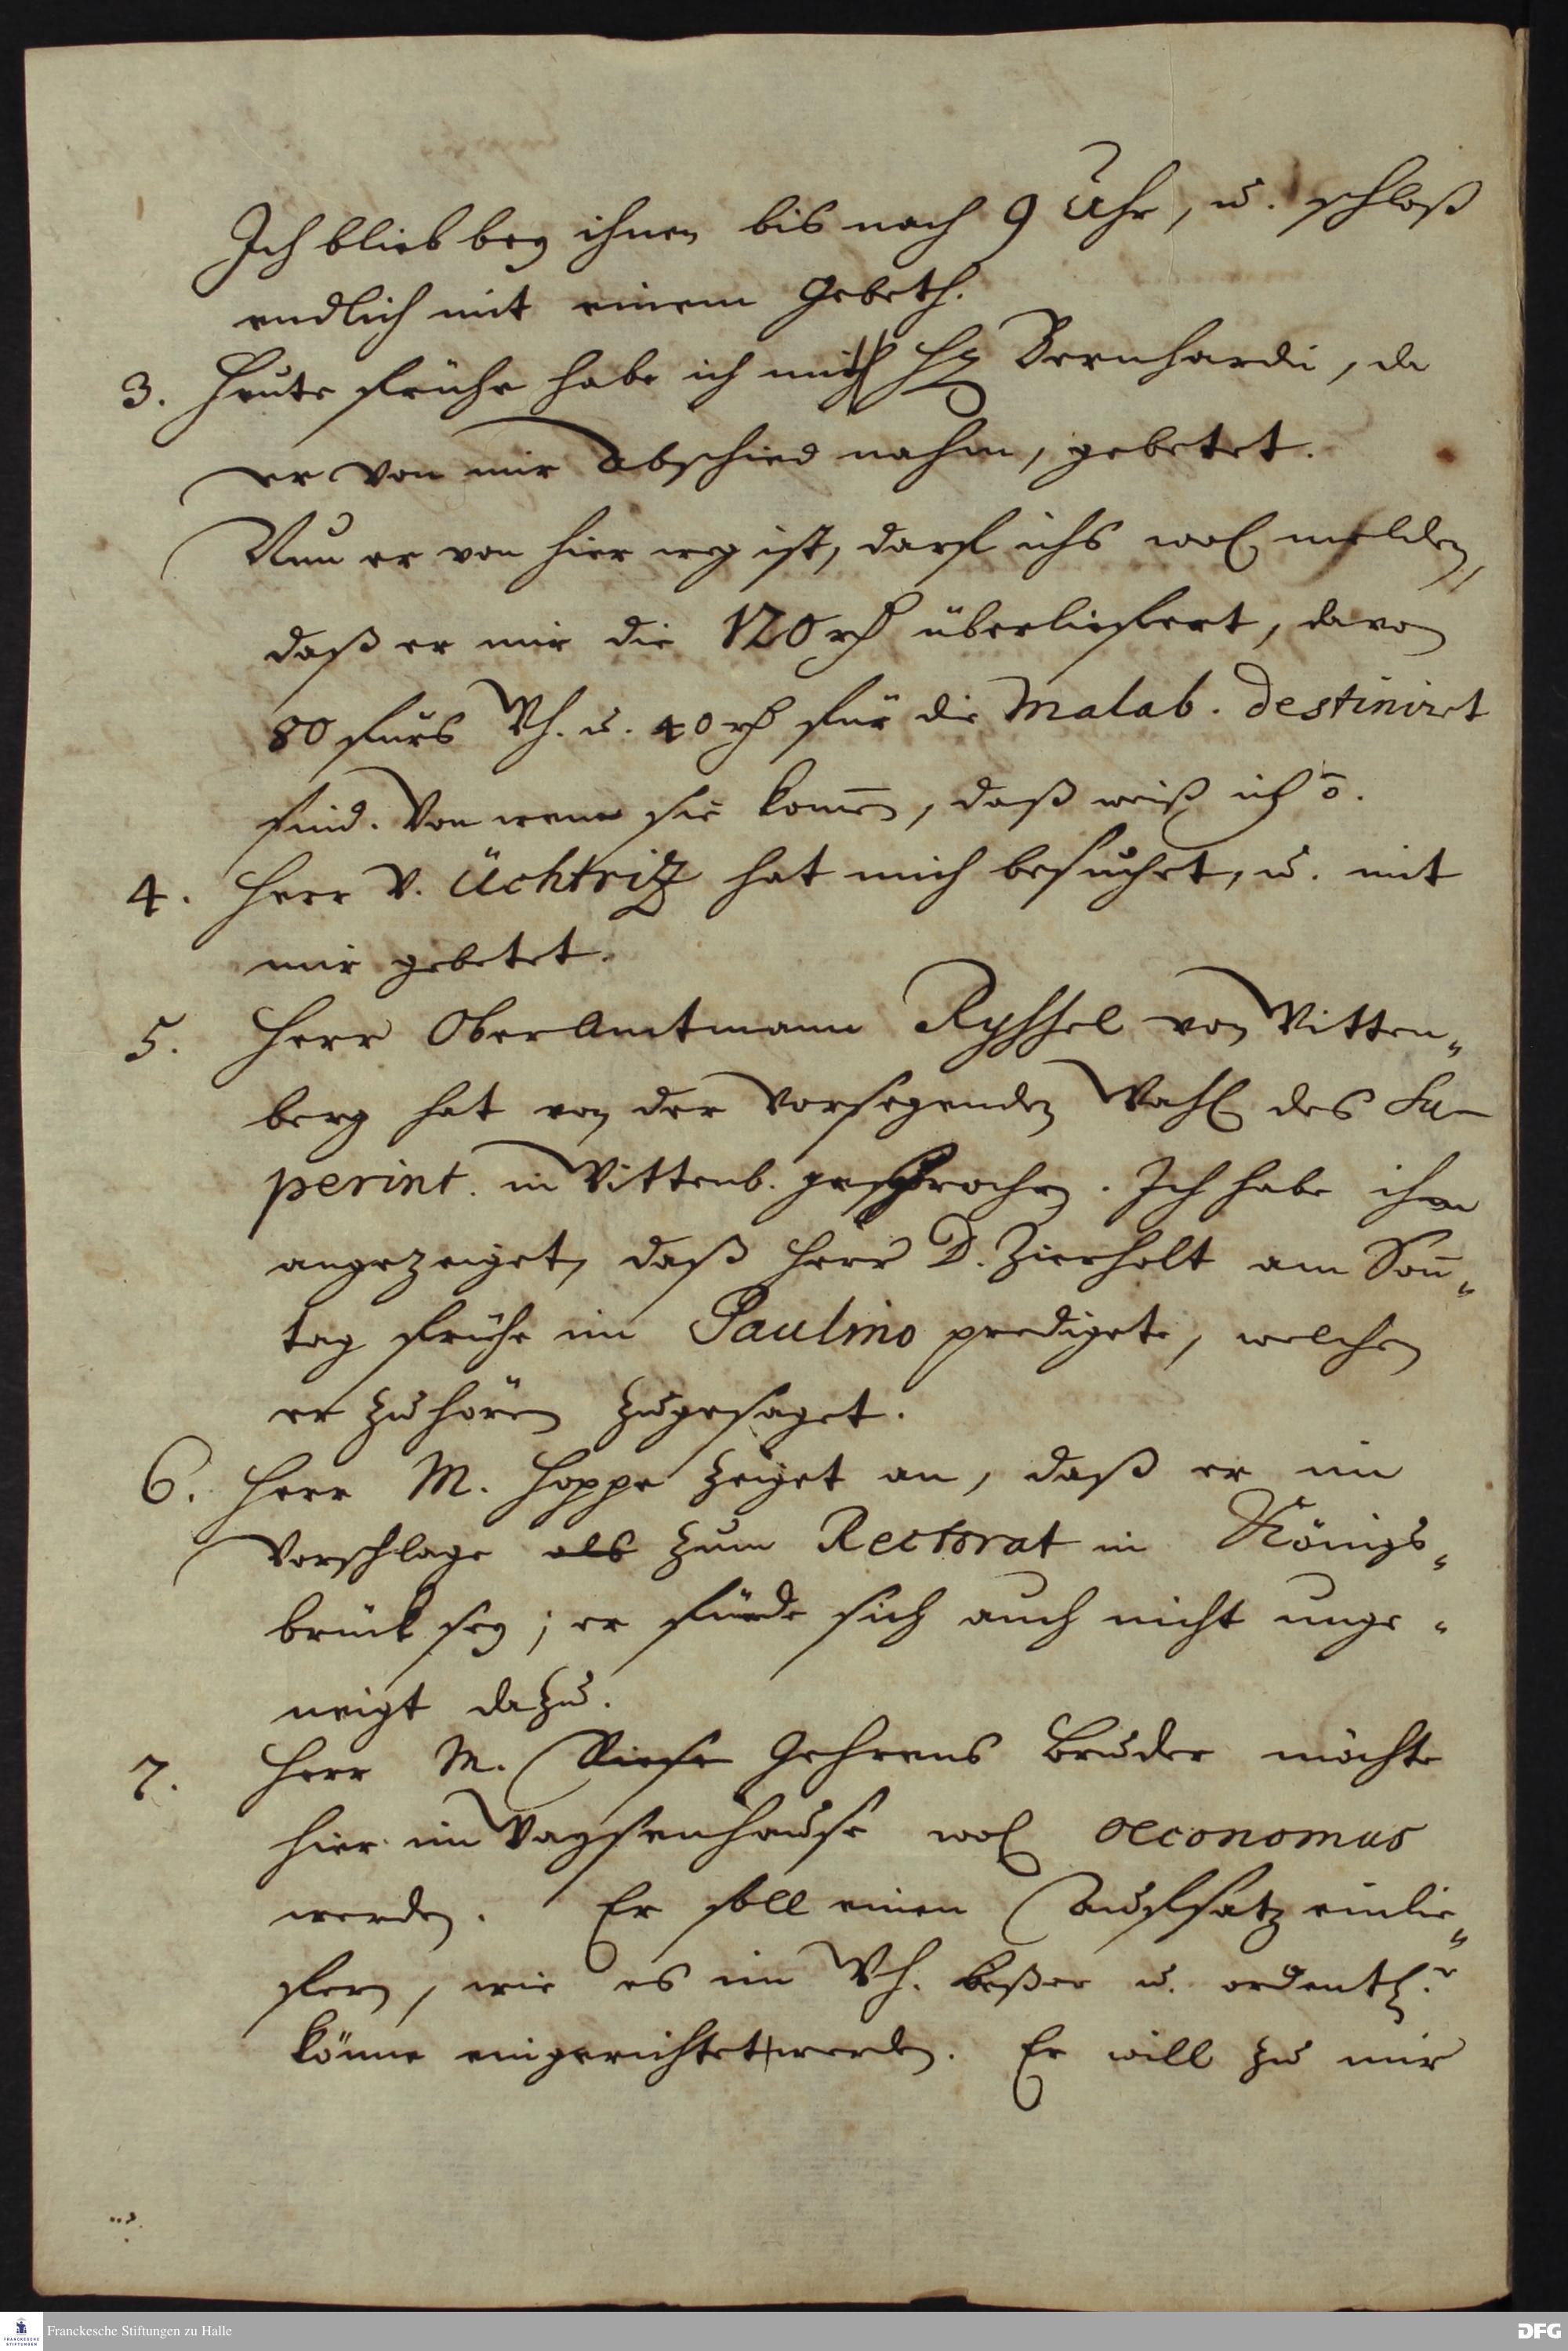 Ich blieb bey ihnen bis nach 9 Uhr, u. schloß
endlich mit einem Gebeth.
3. Heute frühe habe ich mit H. Bernhardi, da
er von mir Abschied nahm, gebetet.
Nun er von hier weg ist, darf ichs wol melden,
daß er mir die 120 rh überliefert, davon
80 fürs Wh. u. 40 rh für die Malab. destiniret
sind. Von wem sie kom̄en, daß weiß ich ō.
4. Herr v. Üchtritz hat mich besuchet, u. mit
mir gebetet.
5. Herr OberAmtmann Ryssel von Witten„
berg hat von der vorseyenden Wahl des Su-
perint. in Wittenb. gesprochen. Ich habe ihm
angezeiget, daß Herr D. Zierholt am Son̄„
tag frühe im Paulino predigete, welchen
er zu hören zugesaget.
6. Herr M. Hoppe zeiget an, daß er im
Vorschlage als zum Rectorat in Königs„
brück sey; er finde sich auch nicht unge„
neigt dazu.
7. Herr M. Riese Gehrens Bruder möchte
hier im Waysenhause wol oeconomus
werden. Er soll einen Aufsatz einlie„
fern, wie es im Wh. beßer u. ordentl.r
könne eingerichtet werden. Er will zu mir
Franckesche Stiftungen zu Halle
FRANCKESCHE STIFTUNGEN
DFG